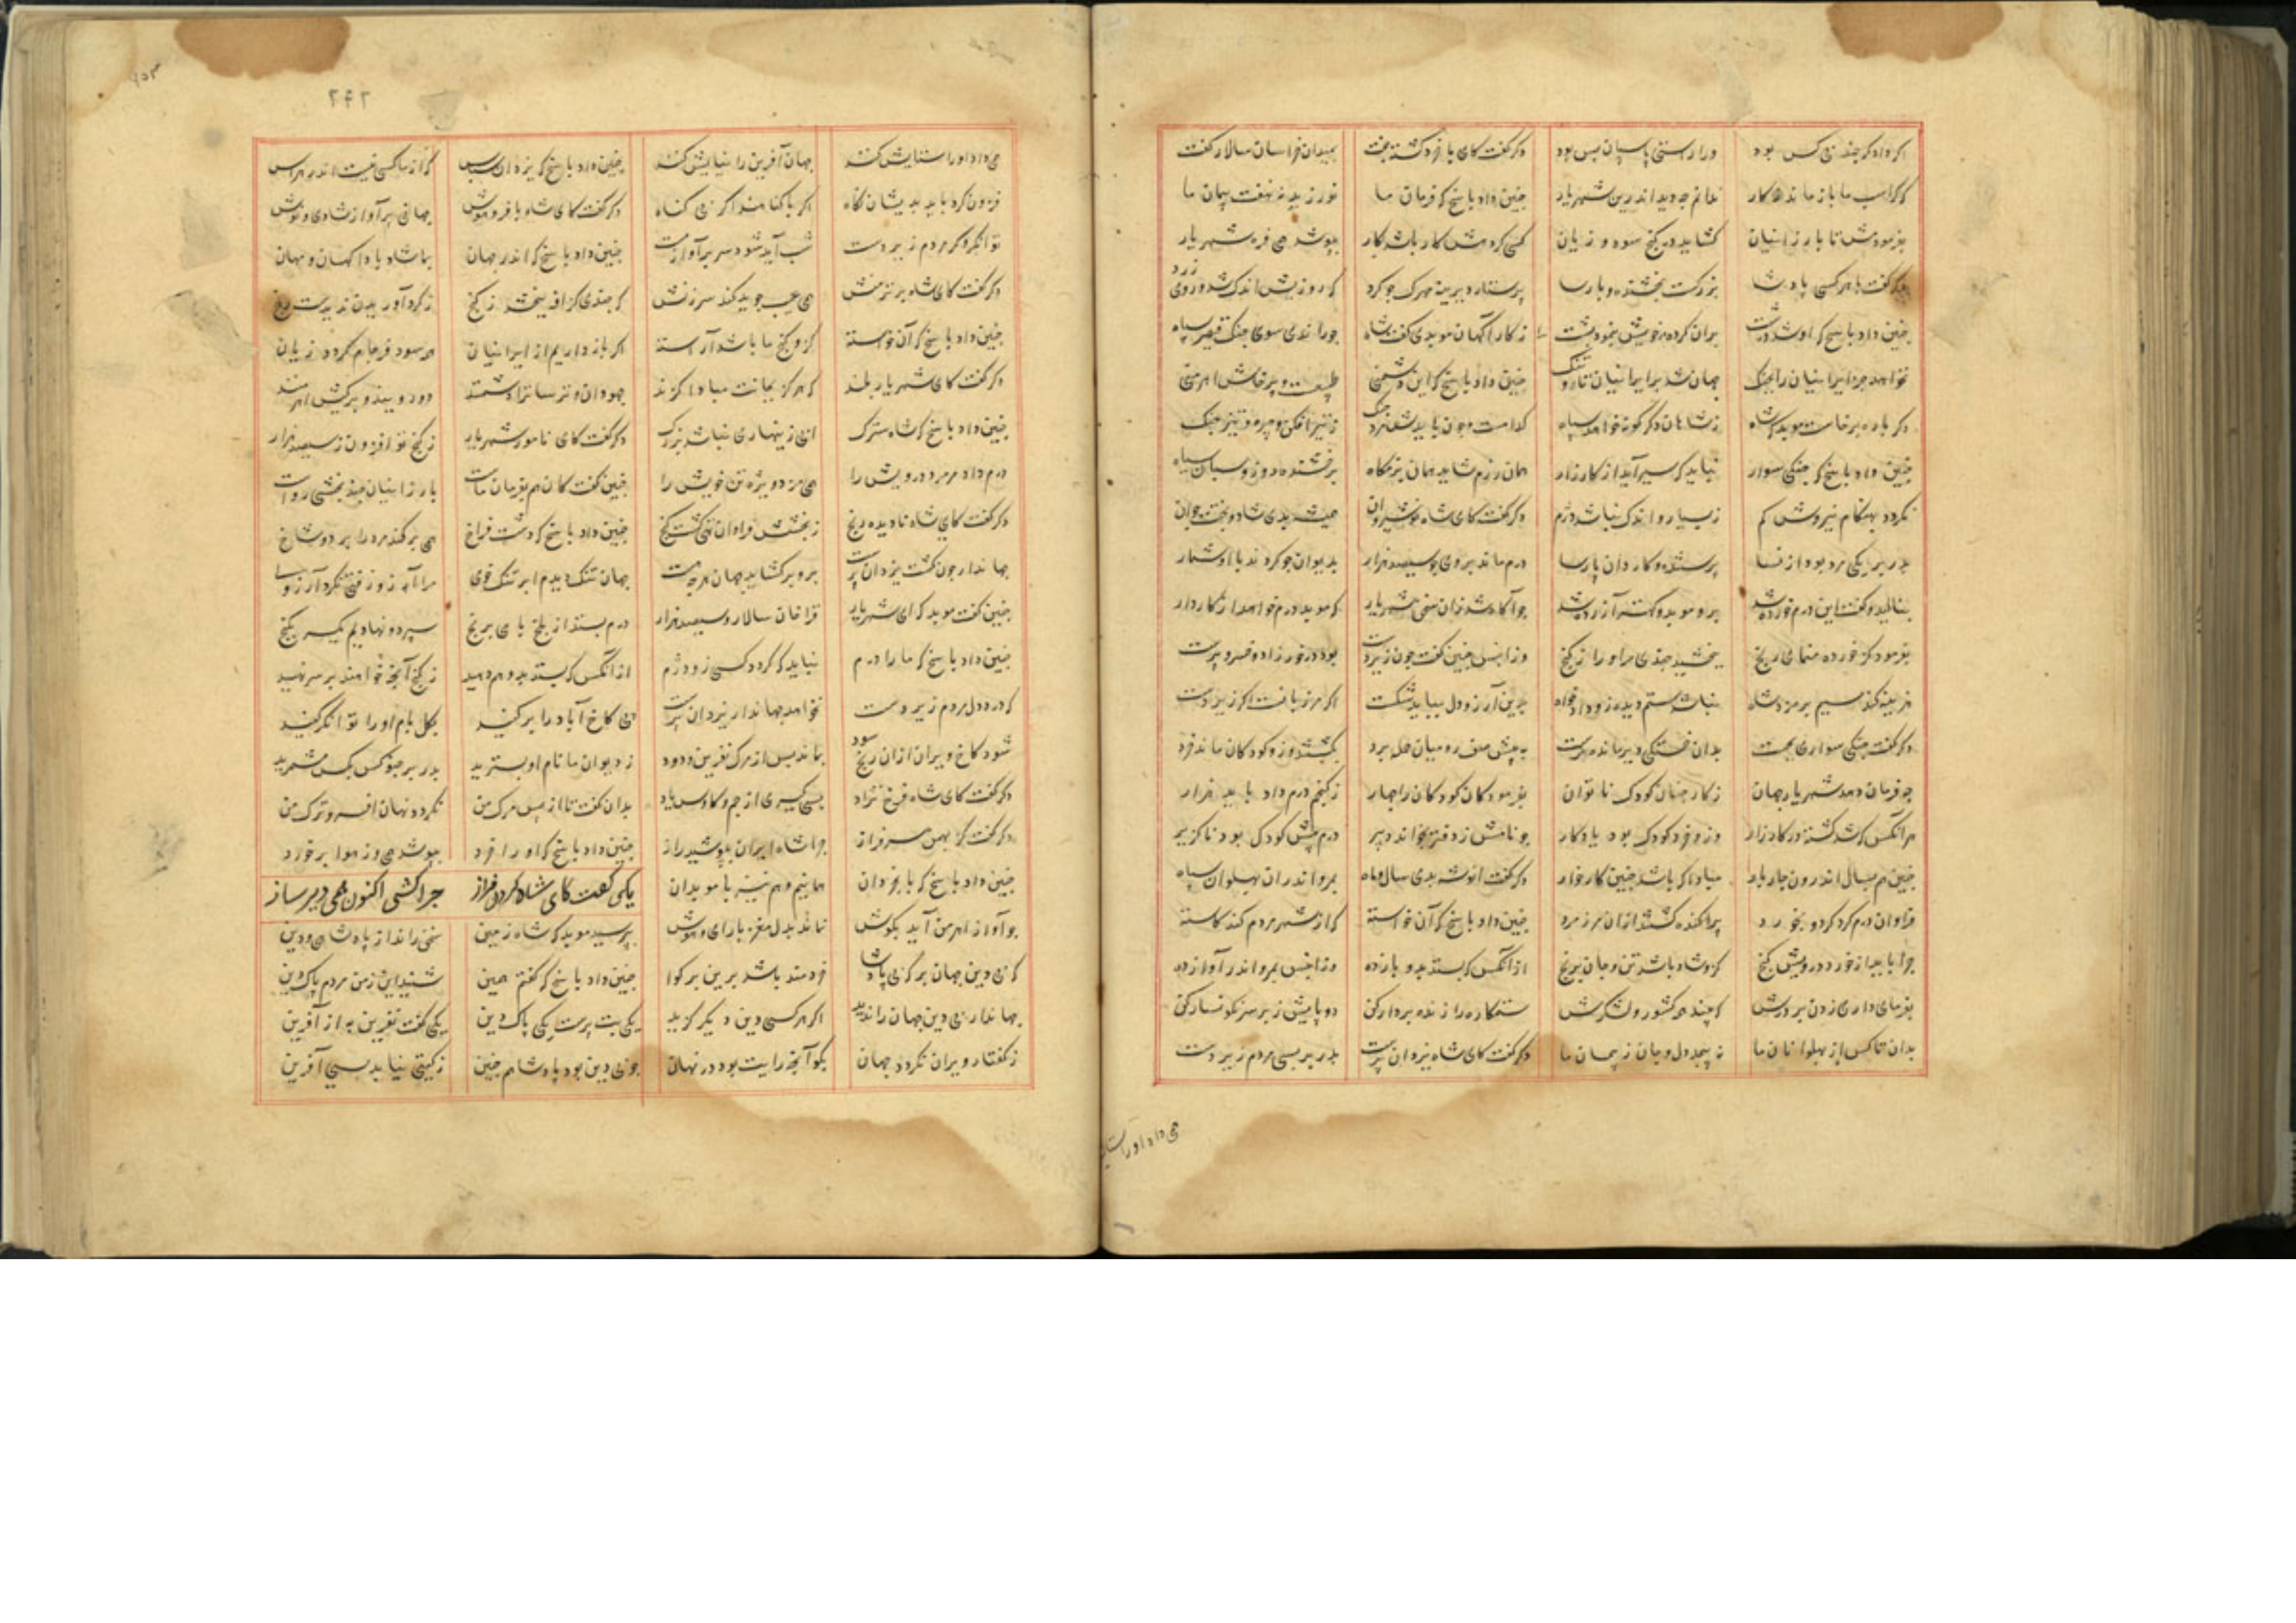 اکر دادکر چند بی کس بود ورا راستی پاسبان بس بود دکر کفت کای با خرد کشته جفت بمیدان خراسان سالار کفت
که کراسب ما باز ماند ز کار ندانم چه دید اندرین شهریار چنین داد پاسخ که فرمان ما نورزید بنهفت پیمان ما
بفرمودمش تا بارزانیان کشاید در کنج سود و زیان کسی کو دهش کار باشد کار بپوشد همی فره شهریار
دکر کفت با هر کسی پادشا بزرکست بخشنده و پارسا پرستار دیرینه مهرک چه کرد که روزیش اندک شد و روی زرد
چنین داد پاسخ که او شد درشت بران کرده خویش بنمود پشت ز کارآکهان موبدی کفت شاه چو راندی سوی جنک قیصر سپاه
نخواهد جز ایرانیان را بجنک جهان شد بر ایرانیان تار و تنک چنین داد پاسخ که این دشمنی طبیعت و پرخاش اهرمنی
دکر باره برخاست موبد که شاه ز شاهان دکر کونه خواهد سپاه کدامست و چون باید سنک مرد ز تیر افکن و چیره و تیز جنک
چنین داد پاسخ که جنکی سوار نباید که سیر آید از کارزار همان رزم شاید همان بزمکاه برخشنده روز و شبان سیاه
نکردد بهنکام نیروش کم ز بسیار و اندک نباشد دژم دکر کفت کای شاه نوشیروان همیشه بدی شاد و بخت جوان
بدر بر یکی مرد بود از نسا پرستنده و کاردان پارسا درم ماند بر وی چو سیصد هزار بدیوان چو کردند با او شمار
بنالید و کفت این درم خورده شد برو موبد و کهتر آزرده شد چو آکاه شد زان سخن شهریار که موبد درم خواهد از کاردار
بفرمود کز خورده منمای رنج ببخشید چندی مر او را ز کنج
دکر کفت جنکی سواری بخست بدان خستکی دیر ماند و برست به پیش صف رومیان حمله برد بکشتند وزو کودکان ماند خرد
چو فرمان دهد شهریار جهان ز کار چنان کودک ناتوان بفرمود کان کودکان را چهار ز کنجم درم داد باید هزار
هر انکس که شد کشته در کارزار وزو خرد کودک بود یادکار چو نامش ز دفتر بخواند دبیر درم پیش کودک بود ناکزیر
چنین هم بسال اندرون چار بار مبادا که باشد چنین کار خوار دکر کفت انوشه بدی سال و ماه بمرو اندران پهلوان سپاه
فراوان درم کرد کرد و بخورد پراکنده کشتند ازان مرز مرد چنین داد پاسخ که آن خواسته که از شهر مردم کند کاسته
چرا باید از خورد درویش کنج که او شاد باشد تن و جان برنج از انکس که بستد بدو بازده وزان پس بمرو اندر آواز ده
بفرمای داری زدن بر درش که بیند هر کشور و لشکرش ستمکاره را زنده بر دار کن دو پایش ز بر سر نکونسار کن
بدان تا کس از پهلوانان ما نپیچد دل و جان ز پیمان ما دکر کفت کای شاه یزدان پرست بدر بر بسی مردم زیردست
همی داد او را ستا
۲۴۲
همی داد او را ستایش کنند جهان آفرین را نیایش کنند چنین داد پاسخ که یزدان سپاس که از ما کسی نیست اندر هراس
فزون کرد باید بدیشان نکاه اکر با کناهند اکر بی کناه دکر کفت کای شاه با فر و هوش جهانی پر آواز شادی و نوش
توانکر و کر مردم زیردست شب آید شود سر پر آواز مست چنین داد پاسخ که اندر جهان بما شاد بادا کهان و مهان
دکر کفت کای شاه برتر منش همی عیب جوید کند سرزنش که چندی کزافه ببخشد ز کنج ز کرد آوریدن ندیدست رنج
چنین داد پاسخ که آن خواسته کزو کنج ما باشد آراسته اکر باز داریم از ایرانیان همه سود فرجام کردد زیان
دکر کفت کای شهریار بلند که هرکز بجانت مبادا کزند جهودان و ترسا ترا دشمنند دو رویند و بر کیش اهرمنند
چنین داد پاسخ که شاه سترک ابی زینهاری نباشد بزرک دکر کفت کای نامور شهریار ز کنج تو افزون ز سیصد هزار
درم داد مر مرد درویش را همی مزد ویژه تن خویش را چنین کفت کان هم بفرمان ماست بارزانیان چیز بخشی رواست
دکر کفت کای شاه نادیده رنج ز بخشش فراوان تهی کشت کنج چنین داد پاسخ که دست فراخ همی بر کند مرد را بر دو شاخ
جهاندار چون کشت یزدان پرست برو بر کشاید جهان هر چه هست جهان تنک دیدیم ابر تنک خوی مرا آز و زفتی نکرد آرزوی
چنین کفت موبد که ای شهریار قراخان سالار و سیصد هزار درم بستد از بلخ بامی برنج سپرد و نهادیم یکسر بکنج
چنین داد پاسخ که ما را درم نباید که کردد کسی زو دژم از انکس که بستد بدو هم دهید ز کنج آنچه خواهند بر سر نهید
که درد دل مردم زیردست نخواهد جهاندار یزدان پرست پی کاخ آباد را برکنید بکل بام او را توانکر کنید
شود کاخ ویران ازان رنج سود بماند پس از مرک نفرین و دود ز دیوان ما نام او بسترید بدر بر چنو کس بکس مشمرید
دکر کفت کای شاه فرخ نژاد بسی کیری از جم و کاوس یاد بدان کفت تا از پس مرک من نکردد نهان افسر و ترک من
دکر کفت کز بهمن سرفراز چرا شاه ایران بپوشید راز چنین داد پاسخ که او را خرد بپوشد همی وز هوا برخورد
یکی کفت کای شاه کردن فراز چرا کشتی اکنون همی دیر ساز
چنین داد پاسخ که با بخردان همانیم و هم نیز با موبدان
چو آواز اهرمن آید بکوش نماند بدل مغز با رای و هوش بپرسید موبد که شاه زمین سخن راند از پادشاهی و دین
که بی دین جهان بر که بی پادشا خردمند باشد برین بر کوا چنین داد پاسخ که کفتم همین شنید این ز من مردم پاک دین
جهاندار بی دین جهان را ندید اکر هر کسی دین دیکر کزید یکی بت پرست یکی پاک دین یکی کفت نفرین به از آفرین
ز کفتار ویران نکردد جهان بکو آنچه رایت بود در نهان چو بی دین بود پادشا هم چنین ز کیتی نیابد بسی آفرین